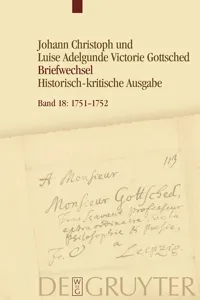 Johann Christoph und
Luise Adelgunde Victorie Gottsched
Briefwechsel
Historisch-kritische Ausgabe
Band 18: 1751–1752
113
A Monsieur
Monsieur Gottsched,
professeur
extraordinaire
Philosophie
Poesie,
a Leipzig
DE GRUYTER
W
DE
G